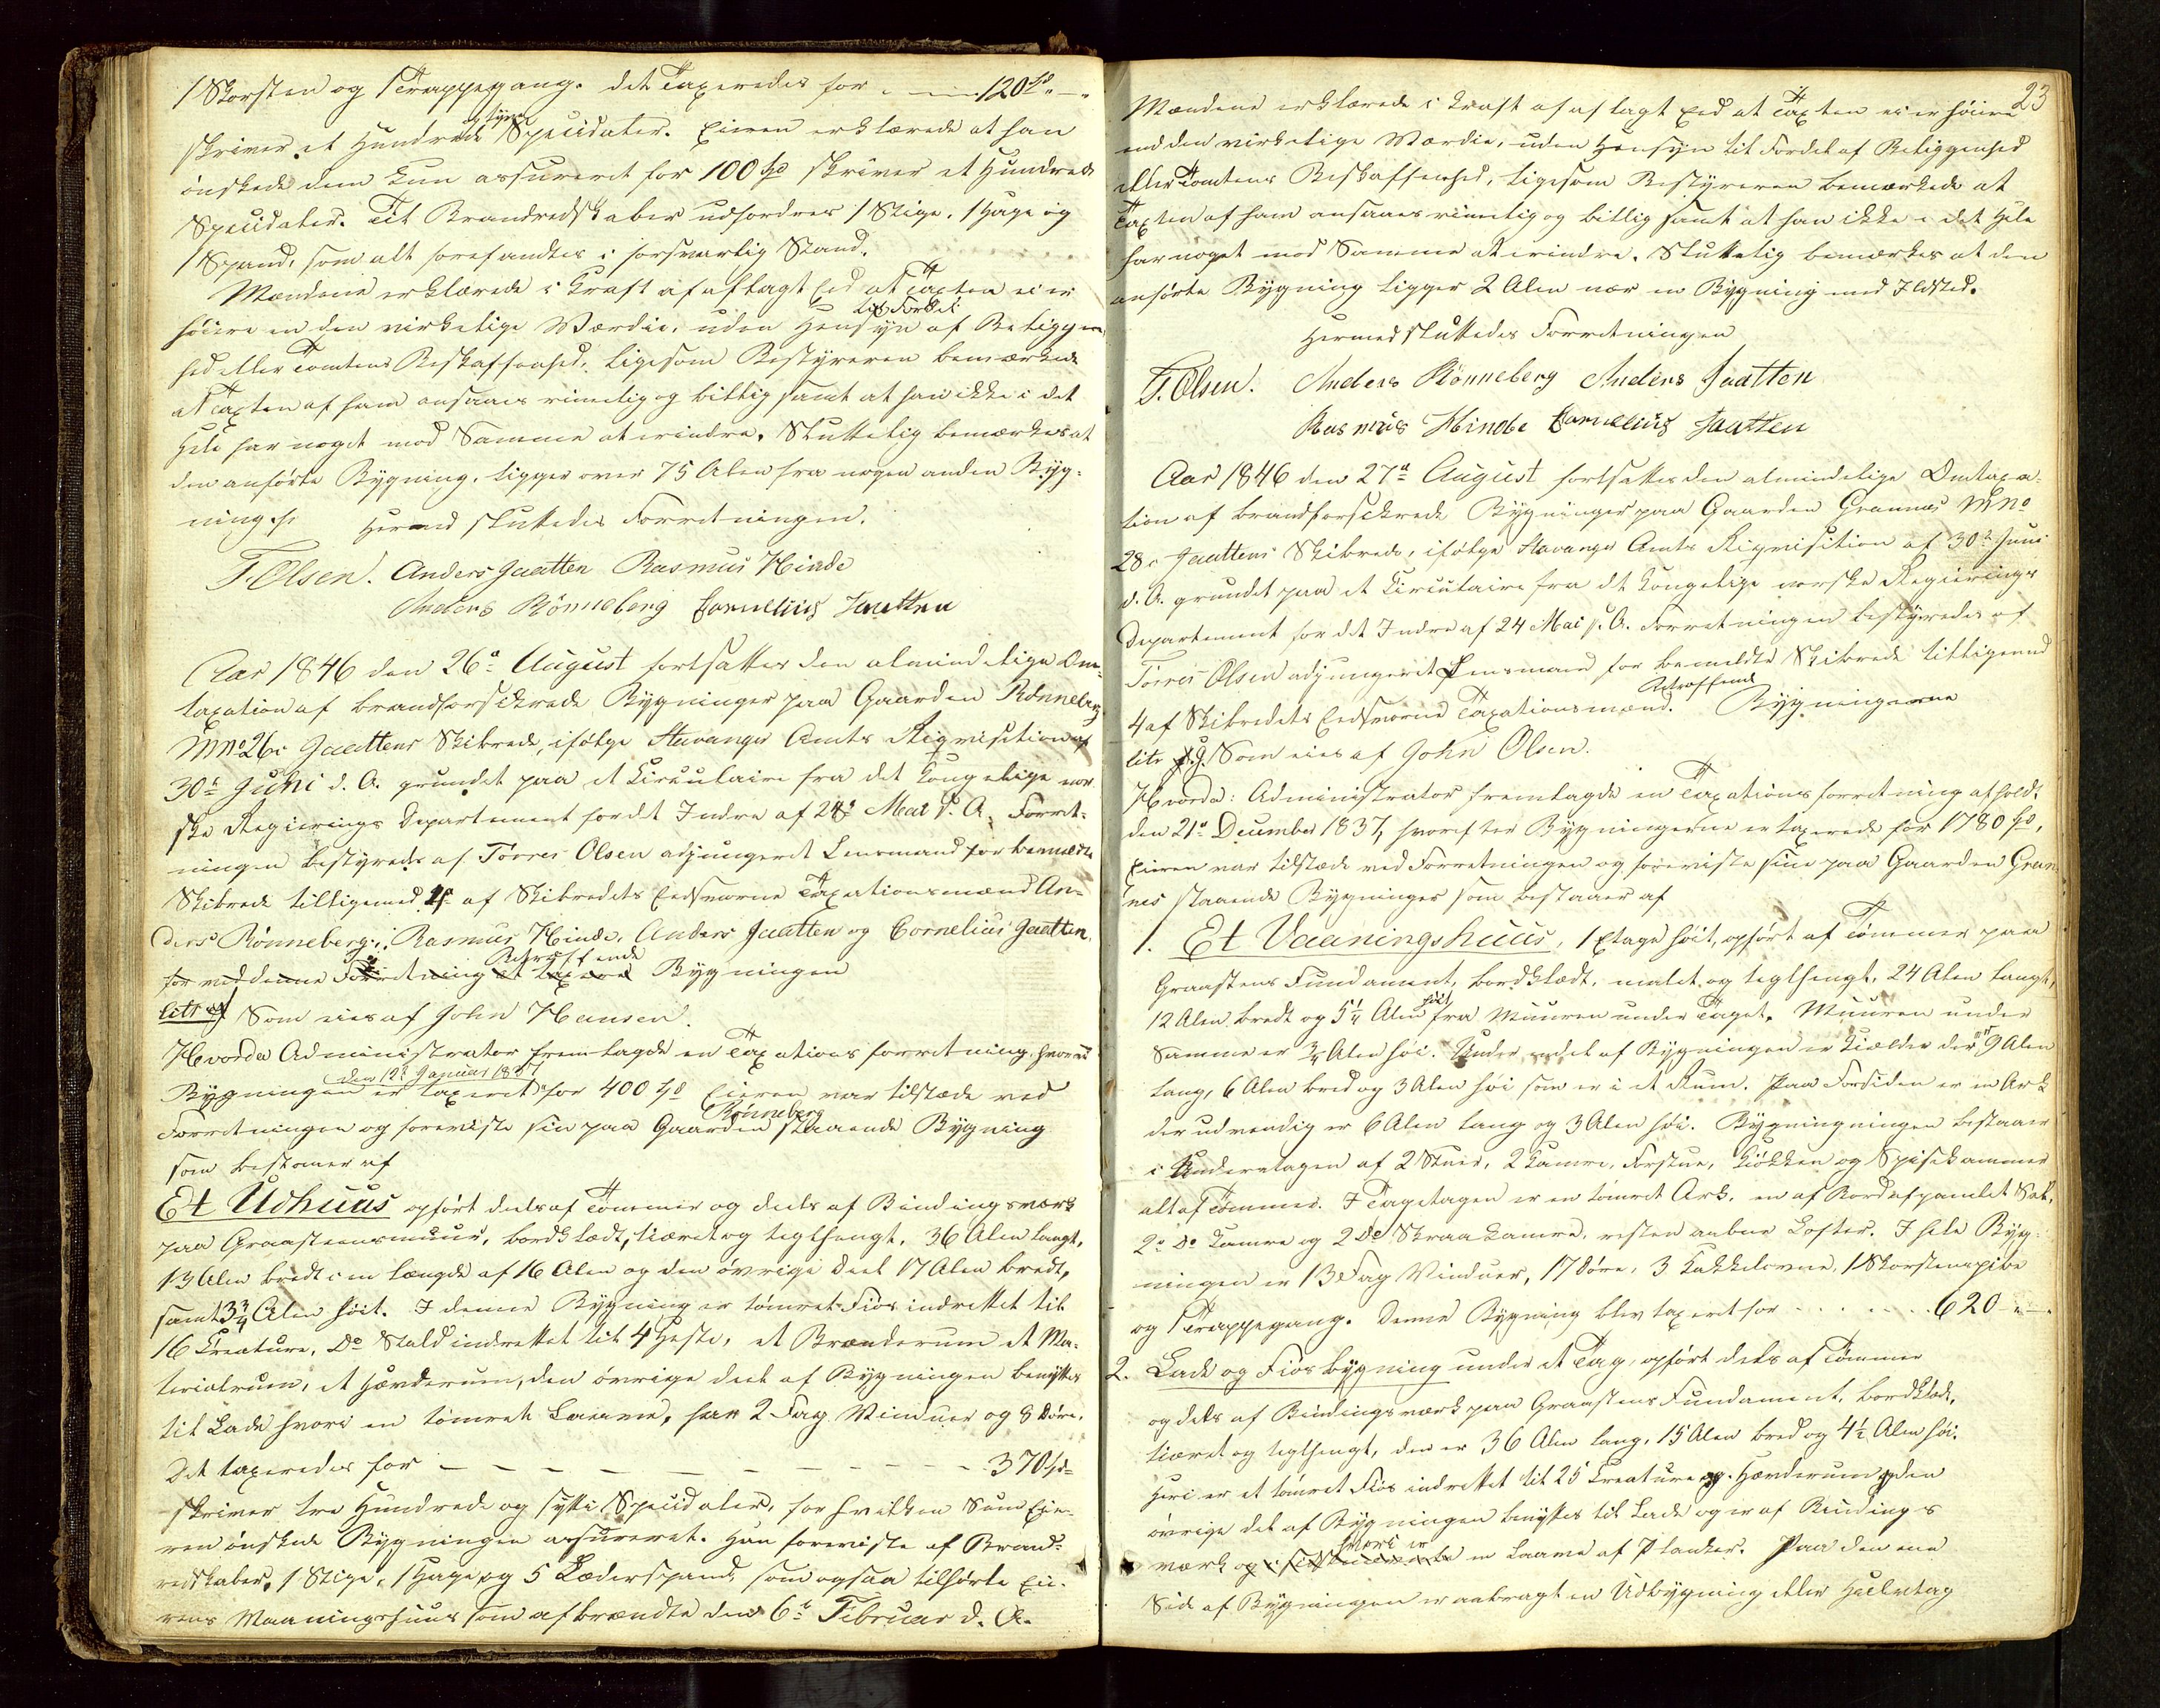 1 Skorsten og 1 Trappegang. det Taxeredes for . —..— 120 Spd. „—„
skriver et Hundrede og tyve Speciedaler. Eieren erklærede at han
ønskede dem kun assureret for 100 Spd skriver et Hundrede
Speciedaler. Til Brandredskaber udfordres 1 Stige, 1 Hage og
1 Spand, som alt forefandtes i forsvarlig Stand.
Mændene erklærede i Kraft af aflagt Eed at Taxten ei er
høiere en den virkelige Værdie, uden Hensyn til Fordel af Beliggen-
hed eller Tomtens Beskaffenhed, ligesom Bestyreren bemærkede
at Taxten af ham ansaaes rimelig og billig samt at han ikke i det
Hele har noget mod Samme at erindre. Sluttelig bemærkes at
den anførte Bygning, ligger over 75 Alen fra nogen anden Byg-
ning. Hermed sluttedes Forretningen.
T. Olsen. Anders Jaatten Rasmus Hinde
Anders Rønneberg Cornelius Jaatten
Aar 1846 den 26de August fortsattes den almindelige Om-
taxation af brandforsikrede Bygninger paa Gaarden Rønneberg
M No 26 i Jaattens Skibrede, ifølge Stavanger Amts Reqvisition af
30te Juni d. A. grundet paa et Circulaire fra det Kongelige nor-
ske Regierings Departement for det Indre af 24de Mai s. A. Forret-
ningen bestyredes af Tørres Olsen adjungeret Lensmand for bemeldte
Skibrede tilligemed 4 af Skibredets Eedsvorne Taxationsmænd An-
ders Rønneberg, Rasmus Hinde, Anders Jaatten og Cornelius Jaatten,
for ved denne Forretning at taxere Betræffende Bygningen
litr Som eies af John Hansen.
Hvorda Administrator fremlagde en Taxations forretning, hvor
Bygningen den 12te Januar 1837 er taxeret for 400 Spd Eieren var tilstæde ved
Forretningen og foreviste sin paa Gaarden Rønneberg staaende Bygning
som bestaaer af
Et Udhuus opført deels af Tømmer og deels af Bindingsværk
paa Graasteensmuur, bordklædt, tiæret og teglhængt, 36 Alen langt,
13 Alen bredt i en Længde af 16 Alen og den øvrige Deel 17 Alen bredt,
samt 3¾ Alen høit. I denne Bygning er tømret Fiøs indrettet til
16 Creature, Do Stald indrettet til 4 Heste, et Brænderum et Ma-
terialrum, et Hørderum, den øvrige deel af Bygningen benyttes
til Lade hvori en tømret Laave, har 2 Fag Vinduer og 8 Døre.
Det taxeredes for — — — — — — — — 370 Spd
skriver tre Hundrede og sytti Speciedaler, for hvilken Sum Eie-
ren ønskede Bygningen assureret. Han foreviste af Brand-
redskaber, 1 Stige, 1 Hage og 5 Læderspand, som ogsaa tilhørte Eie-
rens Vaaningshuus som afbrændte den 6te Februar d. A.
23
Mændene erklærede i Kraft af aflagt Eed at Taxten ei er høiere
end den virkelige Værdie, uden Hensyn til Fordel af Beliggenhed
eller Tomtens Beskaffenhed, ligesom Bestyreren bemærkede at
Taxten af ham ansaaes rimelig og billig samt at han ikke i det Hele
har noget mod Samme at erindre. Sluttelig bemærkes at den
anførte Bygning ligger 2 Alen nær en Bygning med Ildsted.
Hermed sluttedes Forretningen
T. Olsen. Anders Rønneberg Anders Jaatten
Rasmus Hinde Cornelius Jaatten
Aar 1846 den 27de August fortsattes den almindelige Omtaxa-
tion af brandforsikrede Bygninger paa Gaarden Grannes M No
28 i Jaattens Skibrede, ifølge Stavanger Amts Reqvisition af 30te Juni
d. A. grundet paa et Circulaire fra det Kongelige norske Regierings
Departement for det Indre af 24 Mai s. A. Forretningen bestyredes af
Tørres Olsen adjungeret Lensmand for bemeldte Skibrede tilligemed
4 af Skibredets Eedsvorne Taxationsmænd. Betræffende Bygningerne
litr g. Som eies af John Olsen.
Hvorda: Administrator fremlagde en Taxations forretning afholdt
den 21de December 1837, hvorefter Bygningerne er taxerede for 1780 Spd,
Eieren var tilstæde ved Forretningen og foreviste sine paa Gaarden Gran-
nes staaende Bygninger som bestaaer af
1. Et Vaaningshuus, 1 Etage høit, opført af Tømmer paa
Graasteens Fundament, bordklædt, malet og teglhængt, 24 Alen langt,
12 Alen bredt og 5¼ Alen høit fra Muuren under Taget. Muuren under
Samme er ¾ Alen høi. Under endel af Bygningen er Kielder der er 9 Alen
lang, 6 Alen bred og 3 Alen høi som er i et Rum. Paa Forsiden er en Ark
der udvendig er 6 Alen lang og 3 Alen høi. Bygningningen bestaaer
i Underetagen af 2 Stuer, 2 Kamre, Forstue, Kiøkken og Spisekammer
alt af Tømmer. I Tagetagen er en tømret Ark, en af Bord afpanelet Sal,
2de Do Kamre og 2 Do Skraakamre, resten aabne Lofter. I hele Byg-
ningen er 13 Fag Vinduer, 17 Døre, 3 Kakkelovne, 1 Skorsteenspibe
og 1 Trappegang. Denne Bygning blev taxeret for . . . . . . 620 „ — „
2. Lade og Fiøsbygning under et Tag, opført dels af Tømmer
og dels af Bindingsværk paa Graasteens Fundament, bordklæd,
tiæret og teglhængt, den er 36 Alen lang, 15 Alen bred og 4½ Alen høi.
Heri er et tømret Fiøs indrettet til 25 Creature og Hørderum og den
øvrige del af Bygningen benyttes til Lade og er af Bindings
værk hvori er en Laave af Planker. Paa den ene
Side af Bygningen er anbragt en Udbygning eller Halvtag